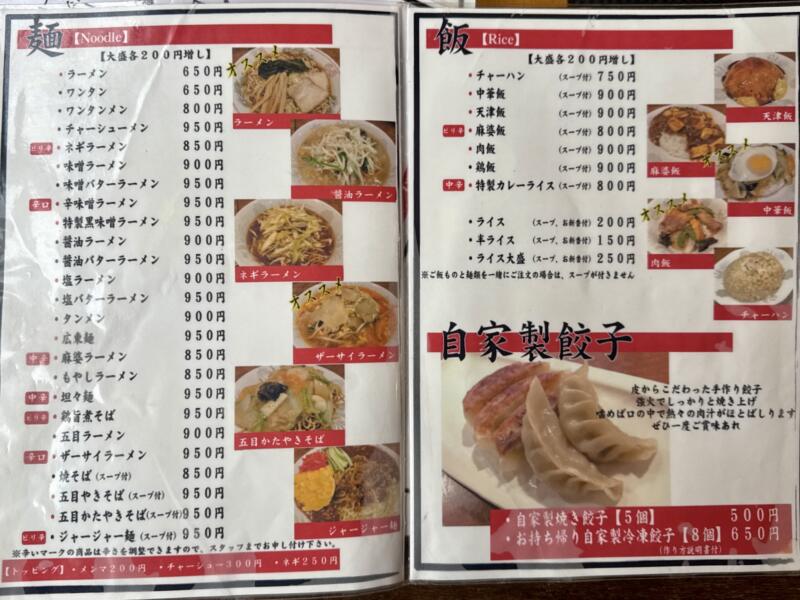 麺【Noodle】
【大盛各200円増し】
・ラーメン 650円
・ワンタン 650円
・ワンタンメン 800円
・チャーシューメン 950円
ピリ辛 ・ネギラーメン 850円
・味噌ラーメン 900円
・味噌バターラーメン 950円
辛口 ・辛味噌ラーメン 950円
・特製黒味噌ラーメン 950円
・醤油ラーメン 900円
・醤油バターラーメン 950円
・塩ラーメン 900円
・塩バターラーメン 950円
・タンメン 900円
・広東麺 950円
中辛 ・麻婆ラーメン 850円
・もやしラーメン 850円
中辛 ・坦々麺 950円
ピリ辛 ・鶏旨煮そば 950円
・五目ラーメン 900円
辛口 ・ザーサイラーメン 950円
・焼そば(スープ付) 850円
・五目やきそば(スープ付) 950円
・五目かたやきそば(スープ付) 950円
ピリ辛 ・ジャージャー麺(スープ付) 950円
※辛いマークの商品は辛さを調整できますので、スタッフまでお申し付け下さい。
【トッピング】・メンマ200円 ・チャーシュー300円 ・ネギ250円
オススメ
ラーメン
醤油ラーメン
ネギラーメン
オススメ
ザーサイラーメン
五目かたやきそば
ジャージャー麺
飯【Rice】
【大盛各200円増し】
・チャーハン (スープ付) 750円
・中華飯 (スープ付) 900円
・天津飯 (スープ付) 900円
ピリ辛 ・麻婆飯 (スープ付) 800円
・肉飯 (スープ付) 900円
・鶏飯 (スープ付) 900円
中辛 ・特製カレーライス(スープ付) 800円
・ライス (スープ、お新香付) 200円
・半ライス (スープ、お新香付) 150円
・ライス大盛 (スープ、お新香付) 250円
※ご飯ものと麺類を一緒にご注文の場合は、スープが付きません
天津飯
麻婆飯
オススメ
中華飯
オススメ
肉飯
チャーハン
自家製餃子
皮からこだわった手作り餃子
強火でしっかりと焼き上げ
噛めば口の中で熱々の肉汁がほとばしります
ぜひ一度ご賞味あれ
・自家製焼き餃子【5個】 500円
・お持ち帰り自家製冷凍餃子【8個】 650円
(作り方説明書付)